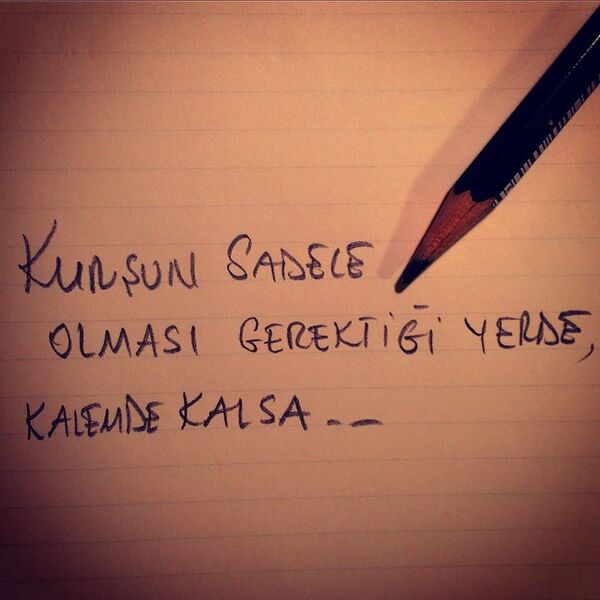 KURŞUN SADECE
OLMASI GEREKTİĞİ YERDE,
KALEMDE KALSA...